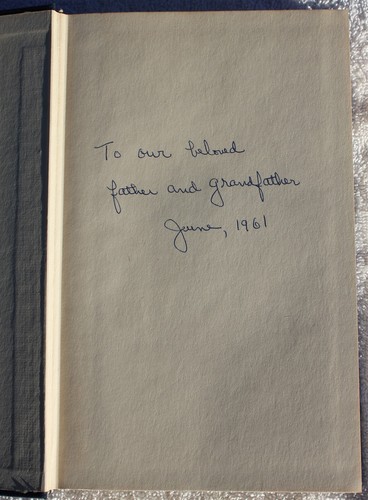 To our beloved
father and grandfather
June, 1961